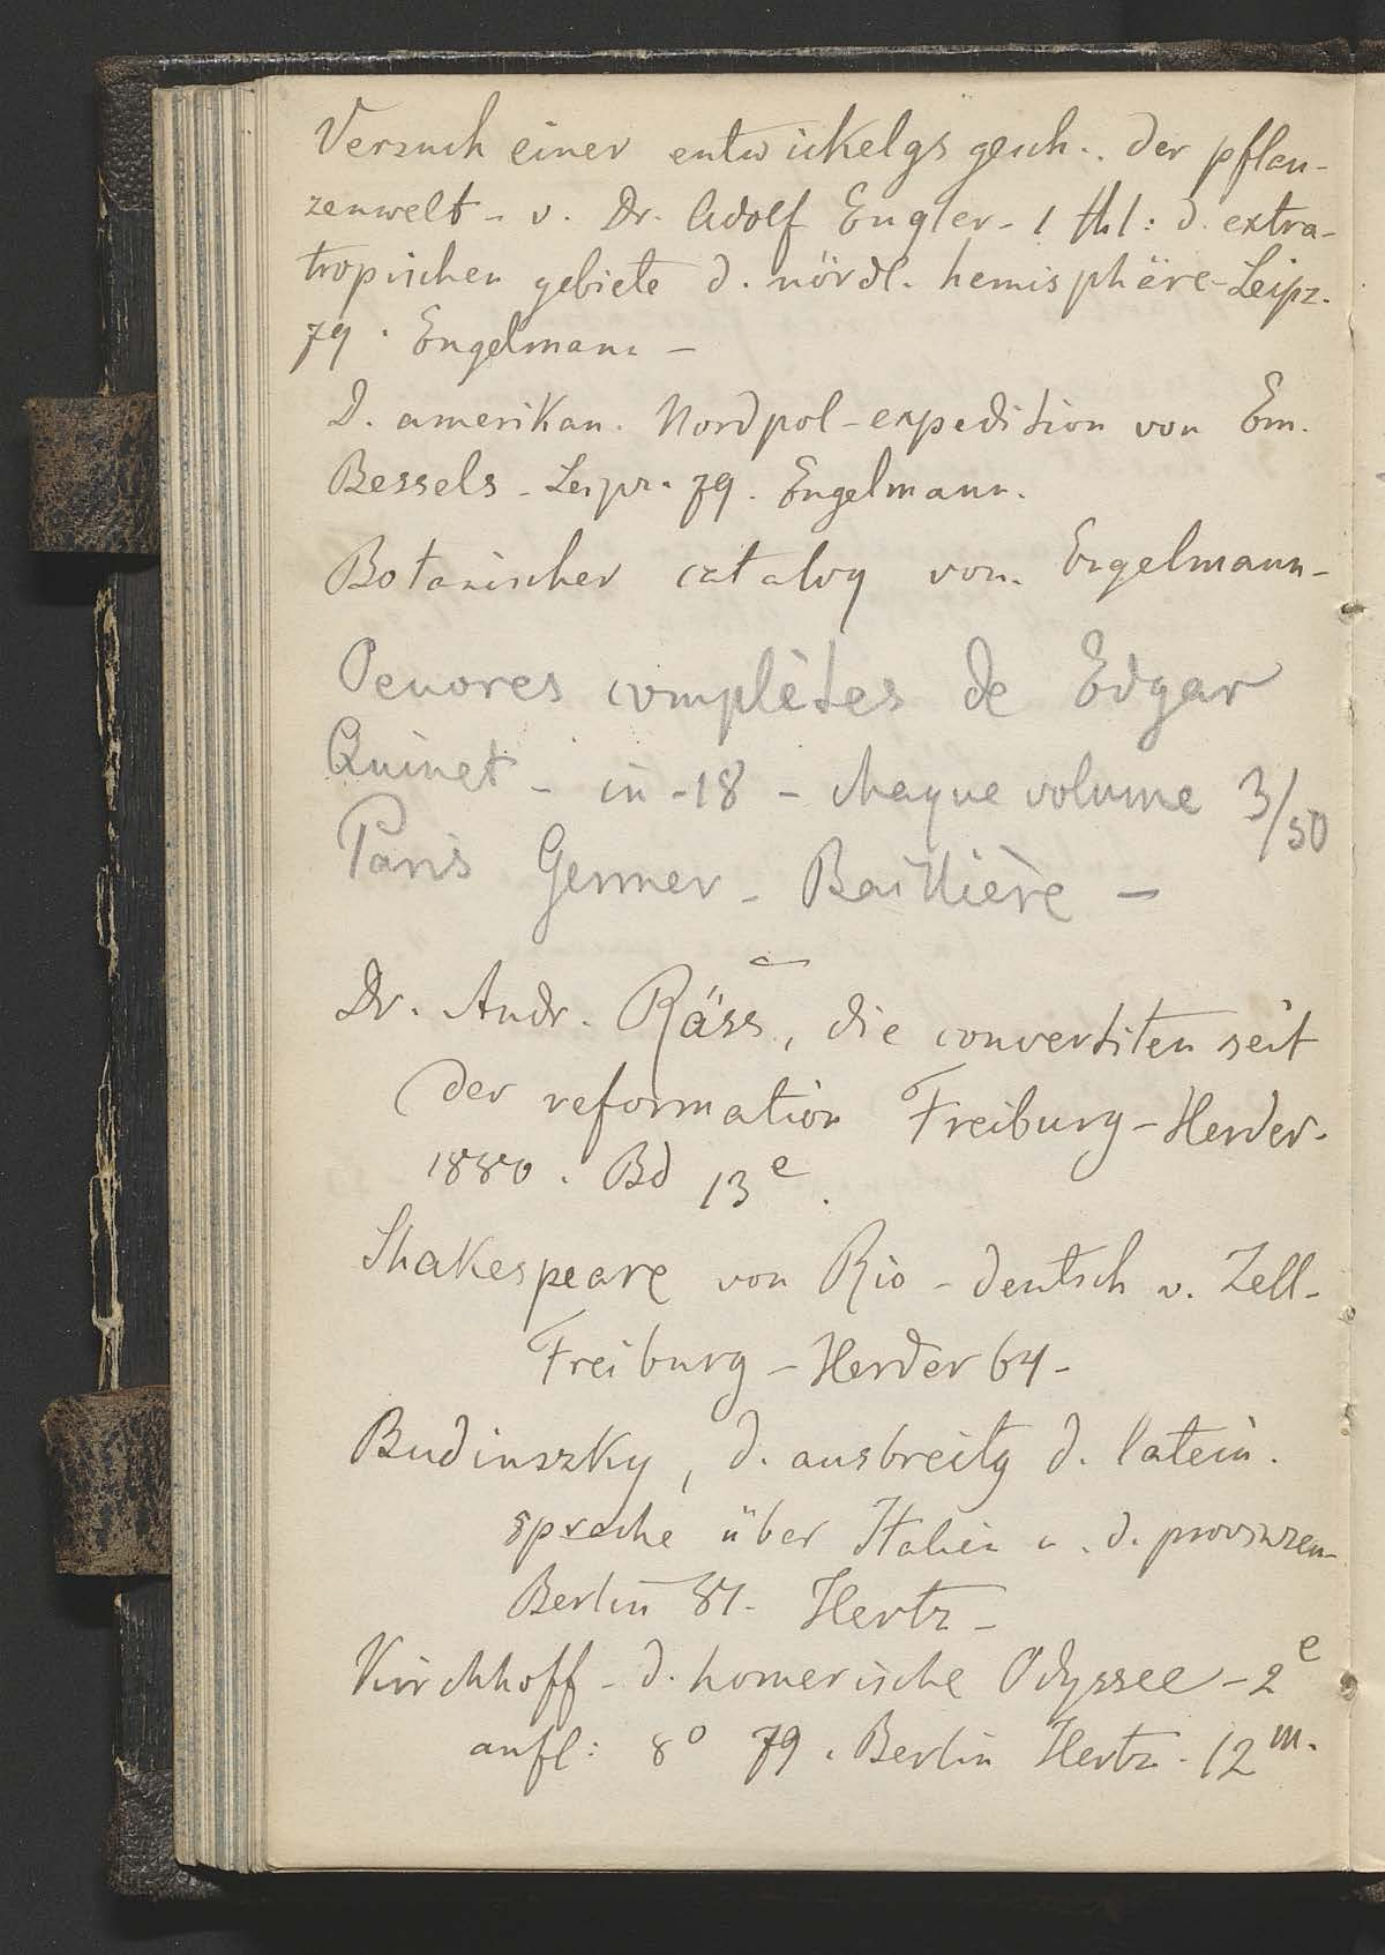 Versuch einer entwickelgs gesch.. der pflan-
zenwelt - v. Dr. Adolf Engler - 1 thl: d. extra-
tropischen gebiete d. nördl. hemisphäre - Leipz.
79. Engelmann -
D. amerikan. Nordpol-expedition von Em.
Bessels - Leipz. 79. Engelmann.
Botanischer catalog von Engelmann -
Oeuvres complètes de Edgar
Quinet - in-18 - chaque volume 3/50
Paris Germer - Baillière -
Dr. Andr. Räss, die convertiten seit
der reformation Freiburg - Herder.
1880. Bd 13e.
Shakespeare von Rio - deutsch v. Zell -
Freiburg - Herder 64 -
Budinszky, d. ausbreitg d. latein.
sprache über Italien u. d. provinzen -
Berlin 81 - Hertz -
Kirchhoff - d. homerische Odyssee - 2e
aufl: 8o 79. Berlin Hertz - 12 m.